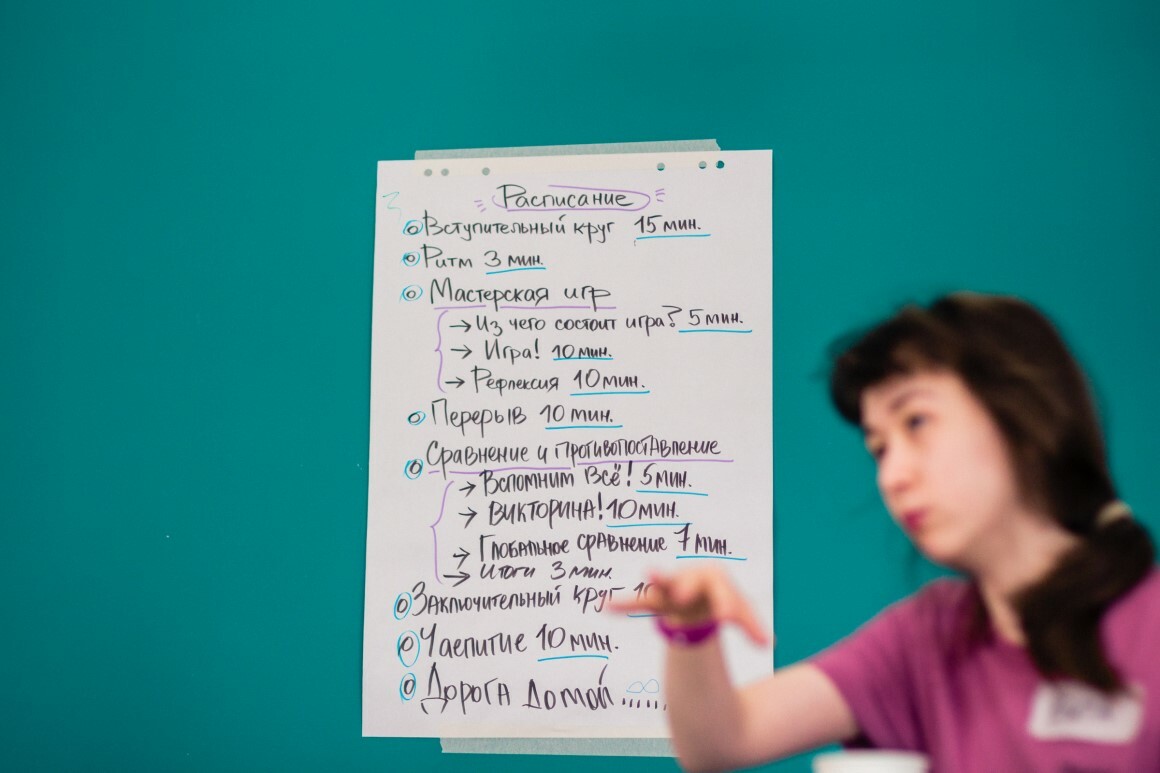 Расписание
Вступительный круг 15 мин.
Ритм 3 мин.
Мастерская игр
→ Из чего состоит игра? 5 мин.
→ Игра! 10 мин.
→ Рефлексия 10 мин.
Перерыв 10 мин.
Сравнение и противопоставление
→ Вспомним всё! 5 мин.
→ ВИКТОРИНА! 10 мин.
→ Глобальное сравнение 7 мин.
→ Итоги 3 мин.
Заключительный круг 10
Чаепитие 10 мин.
Дорога домой......